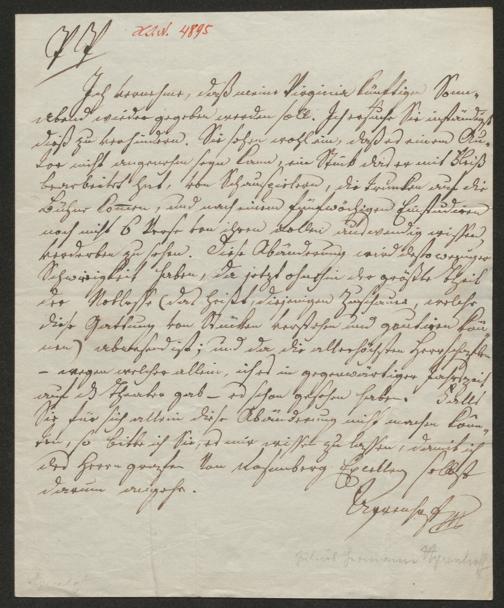 P P
XLIV. 4895
Ich vernehme, daß meine Virginia künftigen Sonn-
abend wieder gegeben werden soll. Ich ersuche Sie inständigst
dieß zu verhindern. Sie sehen wohl ein, daß es einem Au-
tor nicht angenehm seyn kann, ein Stück das er mit Fleiß
bearbeitet hat, von Schauspielern, die trunken auf die
Bühne kommen, und nach einem fünfwöchigen Einstudieren
noch nicht 6 Verse von ihren Rollen auswendig wissen,
verderben zu sehen. Diese Abänderung wird desto weniger
Schwierigkeit haben, da jetzt ohnehin der größte Theil
der Noblesse (das heißt, diejenigen Zuschauer, welche
diese Gattung von Stücken verstehen und goutiren kön-
nen) abwesend ist; und da die allerhöchsten Herrschaften
– wegen welcher allein, ich es in gegenwärtiger Jahrszeit
auf das Theater gab – es schon gesehen haben. Falls
Sie für sich allein diese Abänderung nicht machen kön-
nen, so bitte ich Sie, es mir wissen zu lassen, damit ich
des Herrn Grafen von Rosenberg Excellenz selbst
darum angehe.
Ayrenhoff
Hermann Ayrenhoff